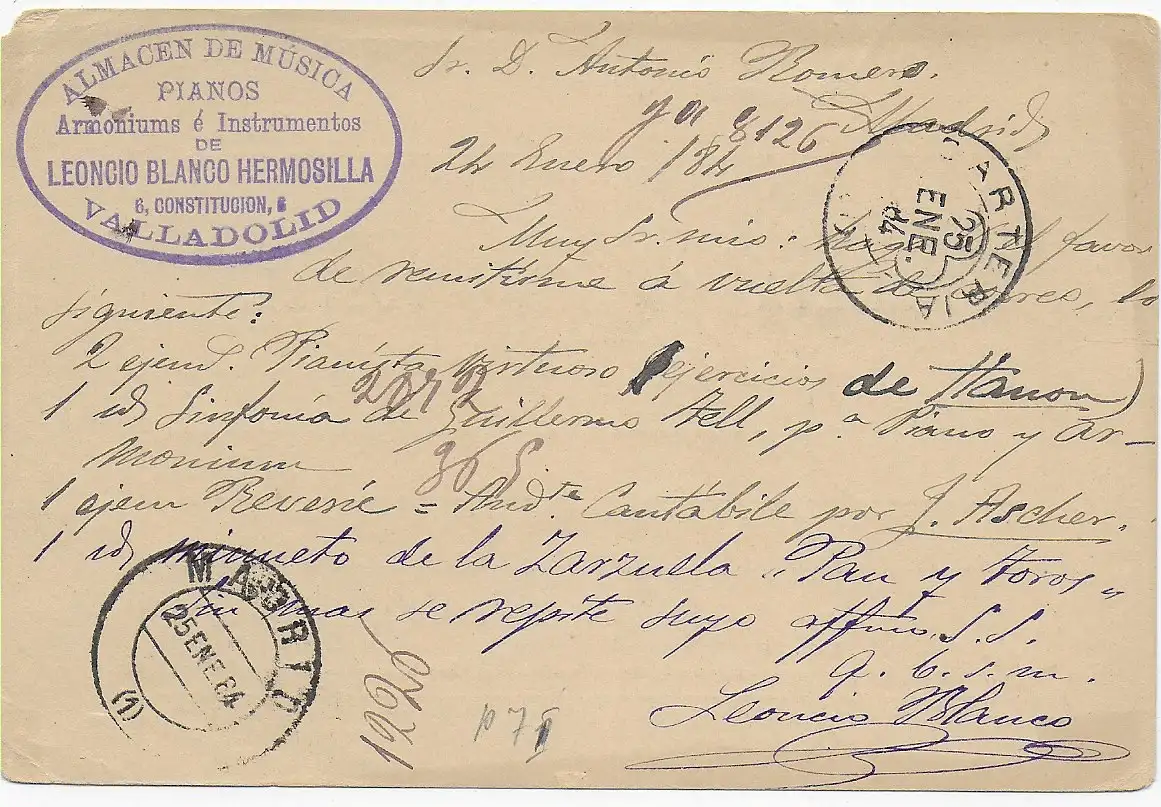 ALMACEN DE MÚSICA
PIANOS
Armóniums é Instrumentos
DE
LEONCIO BLANCO HERMOSILLA
6, CONSTITUCION, 6
VALLADOLID
Sr. D. Antonio Romero.
Madrid
ya 8126
24 Enero /84
CARTERIA
25 ENE. 84
Muy Sr. mio: favor
de remitirme á vuelta de correo, lo
siguiente:
2 ejem. Pianista virtuoso (ejercicios de Hanon)
1 id Sinfonía de Guillermo Tell, p.ª Piano y Ar-
monium
365
1 ejem Reverie = And.te Cantábile por J. Ascher.
1 id minueto de la Zarzuela "Pan y toros"
Sin mas se repite suyo affmo. S. S.
q. b. s. m.
Leoncio Blanco
MADRID
25 ENE 84
(1)
1226